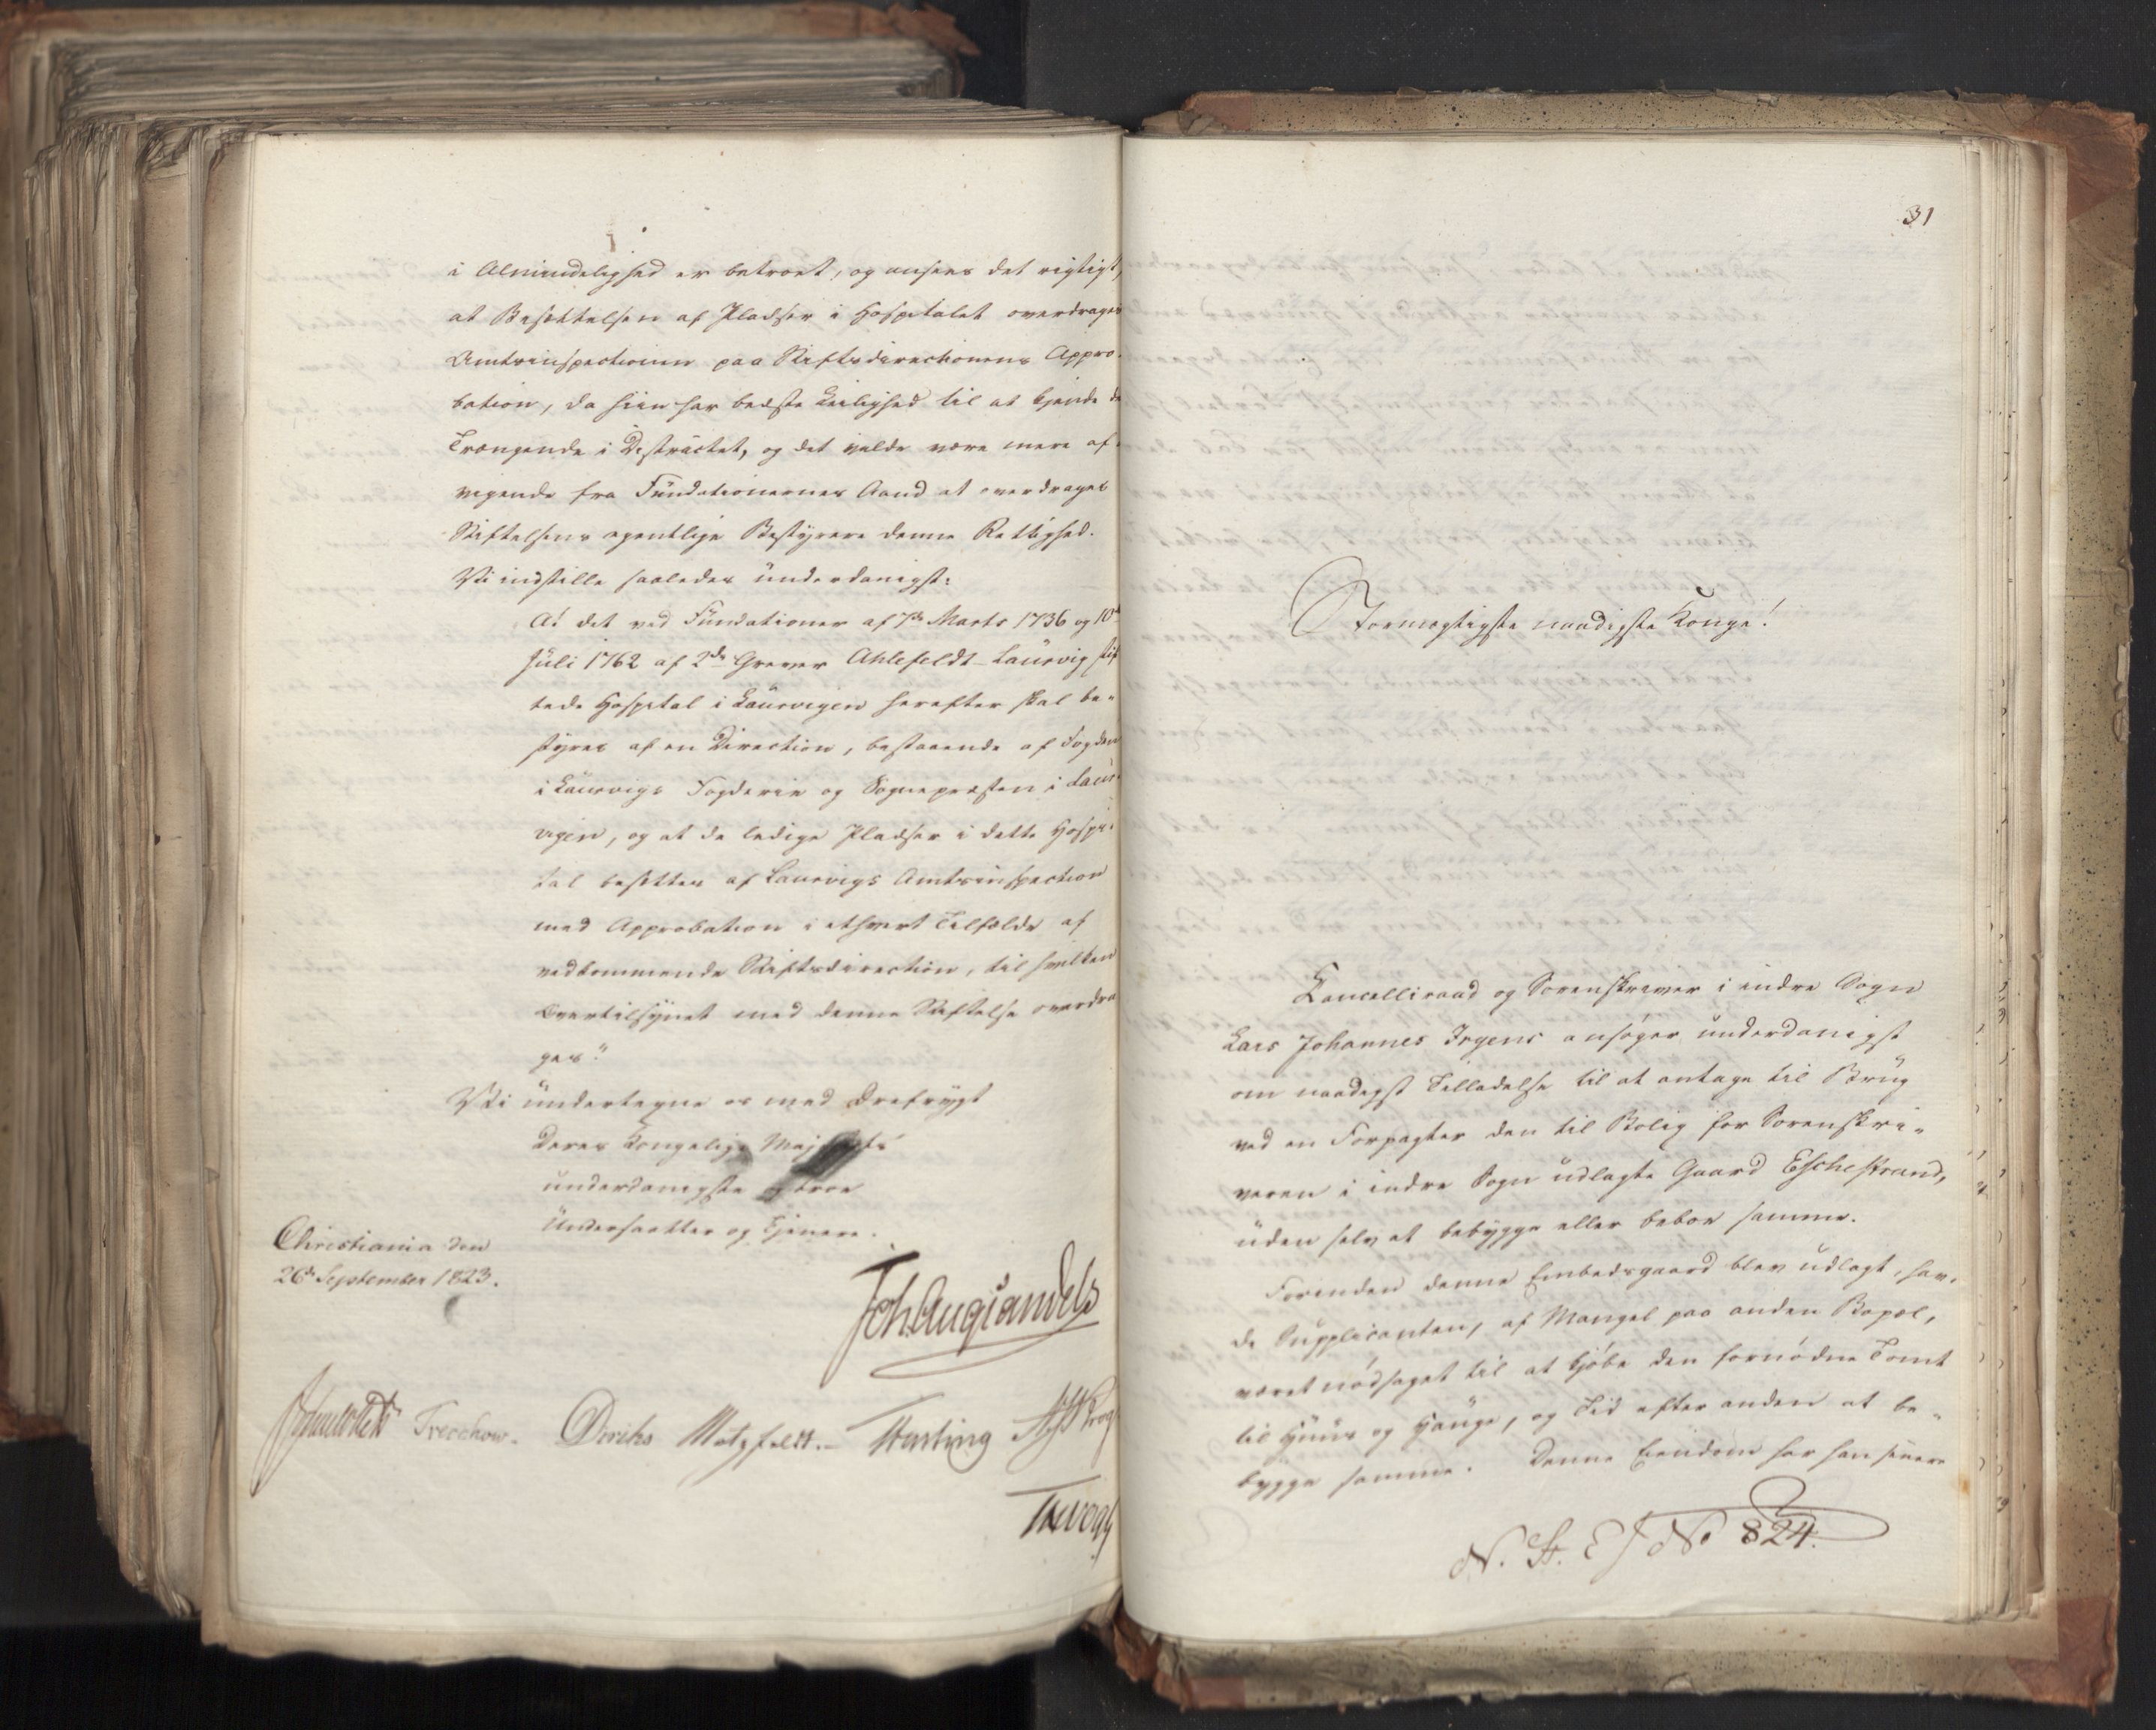 i Almindelighed er betroet, og ansees det rigtigt,
at Besættelsen af Pladser i Hospitalet overdrages
Amtsinspectionen paa Stiftsdirectionens Appro-
bation, da hiin har bedste Leilighed til at kjende de
Trængende i Districtet, og det vilde være mere af-
vigende fra Fundationernes Aand at overdrages
Stiftelsens egentlige Bestyrere denne Rettighed.
Vi indstille saaledes underdanigst:
At det ved Fundationer af 7de Marts 1736 og 10de
Juli 1762 af 2de Grever Ahlefeldt-Laurvig stif
tede Hospital i Laurvigen herefter skal be-
styres af en Direction, bestaaende af Fogden
i Laurvigs Fogderie og Sognepræsten i Laur-
vigen, og at de ledige Pladser i dette Hospi-
tal besættes af Laurvigs Amtsinspection
med Approbation i ethvert Tilfælde af
vedkommende Stiftsdirection, til hvilken
Overtilsynet med denne Stiftelse overdra
ges."
Vi undertegne os med Ærefrygt
Deres Kongelige Majestæts
underdanigste og troe
Undersaatter og Tjenere.
Christiania den
26de September 1823.
Joh. Aug. Sandels
Sommerhielm Treschow. Diriks Motzfeldt. Fasting Krog
31
Stormægtigste naadigste Konge!
Cancelliraad og Sorenskriver i indre Sogn
Lars Johannes Irgens ansøger underdanigst
om naadigst Tilladelse til at antage til Brug
ved en Forpagter den til Bolig for Sorenskri-
veren i indre Sogn udlagte Gaard Eschestrand,
uden selv at bebygge eller beboe samme.
Forinden denne Embedsgaard blev udlagt, hav-
de Supplicanten, af Mangel paa anden Bopæl,
været nødsaget til at kjøbe den fornødne Tomt
til Huus og Hauge, og Tid efter anden at be-
bygge samme. Denne Eiendom har han senere
N. St. E J No 824.